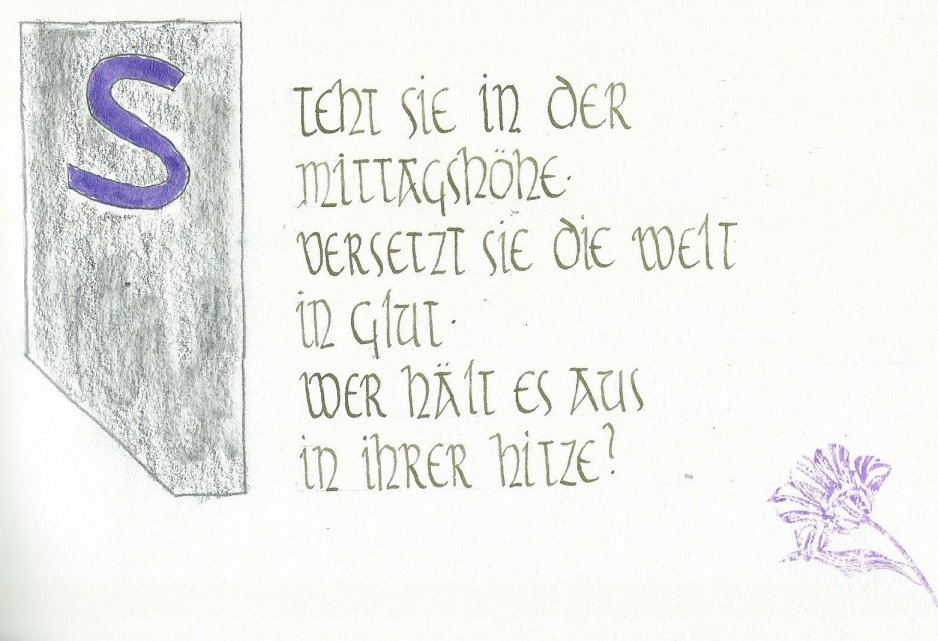 Steht sie in der
Mittagshöhe.
versetzt sie die Welt
in Glut.
Wer hält es aus
in ihrer Hitze?